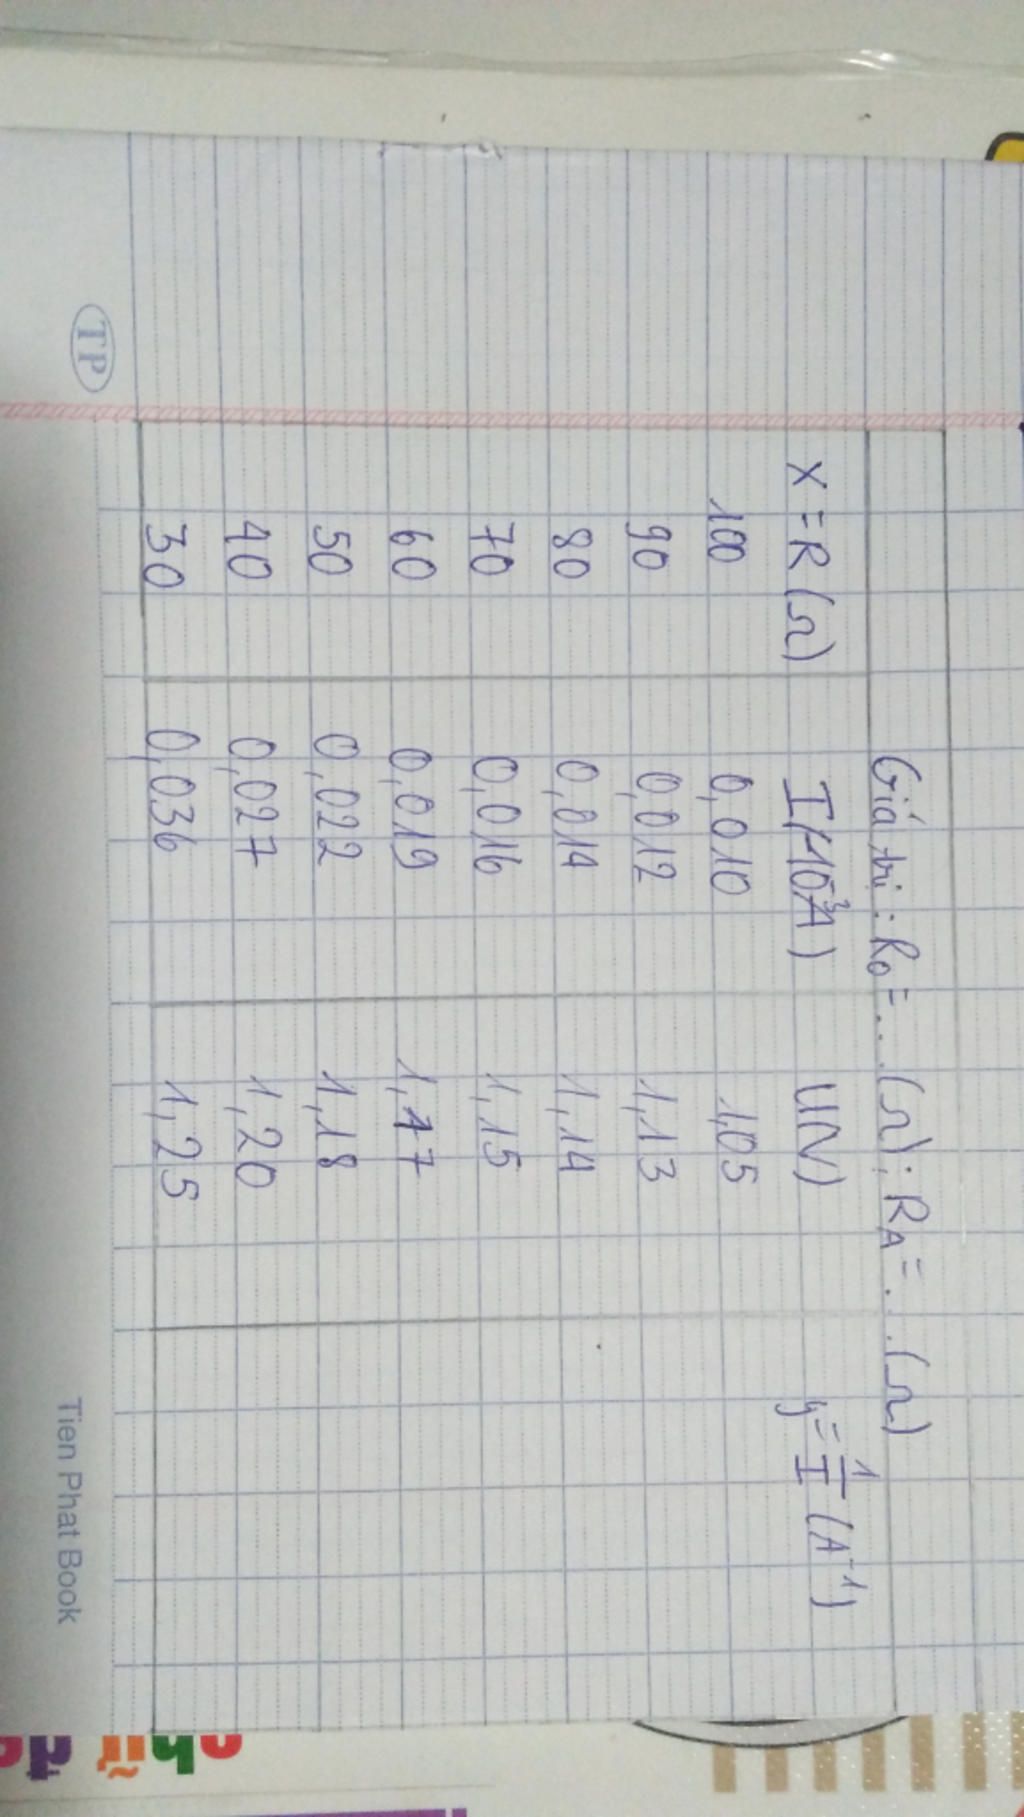 Giá trị: R₀ = ... (Ω); R_A = ... (Ω)
x = R (Ω) I (10⁻³A) U(V) y = 1/I (A⁻¹)
100 0,010 1,05
90 0,012 1,13
80 0,014 1,14
70 0,016 1,15
60 0,019 1,17
50 0,022 1,18
40 0,027 1,20
30 0,036 1,25
TP
Tien Phat Book
chữ